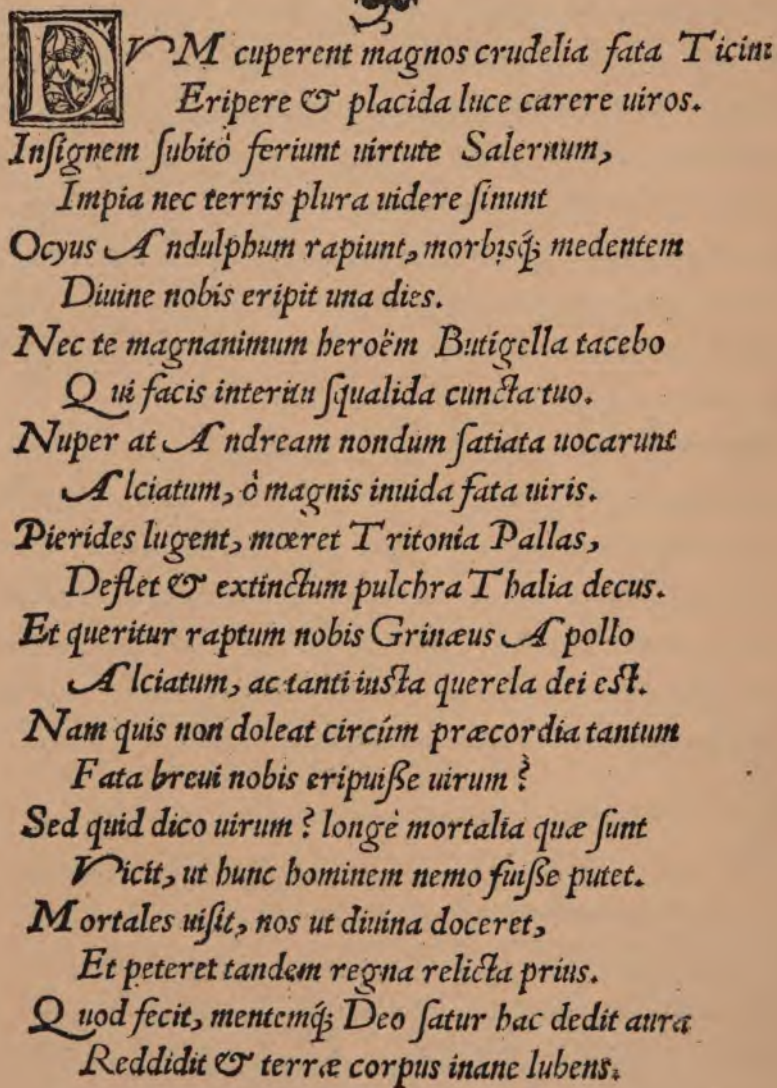 DVM cuperent magnos crudelia fata Ticini
Eripere & placida luce carere uiros.
Inſignem ſubitò feriunt uirtute Salernum,
Impia nec terris plura uidere ſinunt
Ocyus Andulphum rapiunt, morbisq́; medentem
Diuine nobis eripit una dies.
Nec te magnanimum heroëm Butigella tacebo
Qui facis interitu ſqualida cuncta tuo.
Nuper at Andream nondum ſatiata uocarunt
Alciatum, ò magnis inuida fata uiris.
Pierides lugent, mœret Tritonia Pallas,
Deflet & extinctum pulchra Thalia decus.
Et queritur raptum nobis Grinæus Apollo
Alciatum, ac tanti iusta querela dei est.
Nam quis non doleat circúm præcordia tantum
Fata breui nobis eripuiſse uirum?
Sed quid dico uirum? longè mortalia quæ ſunt
Vicit, ut hunc hominem nemo fuiſse putet.
Mortales uiſit, nos ut diuina doceret,
Et peteret tandem regna relicta prius.
Quod fecit, mentemq́; Deo ſatur hac dedit aura
Reddidit & terræ corpus inane lubens.